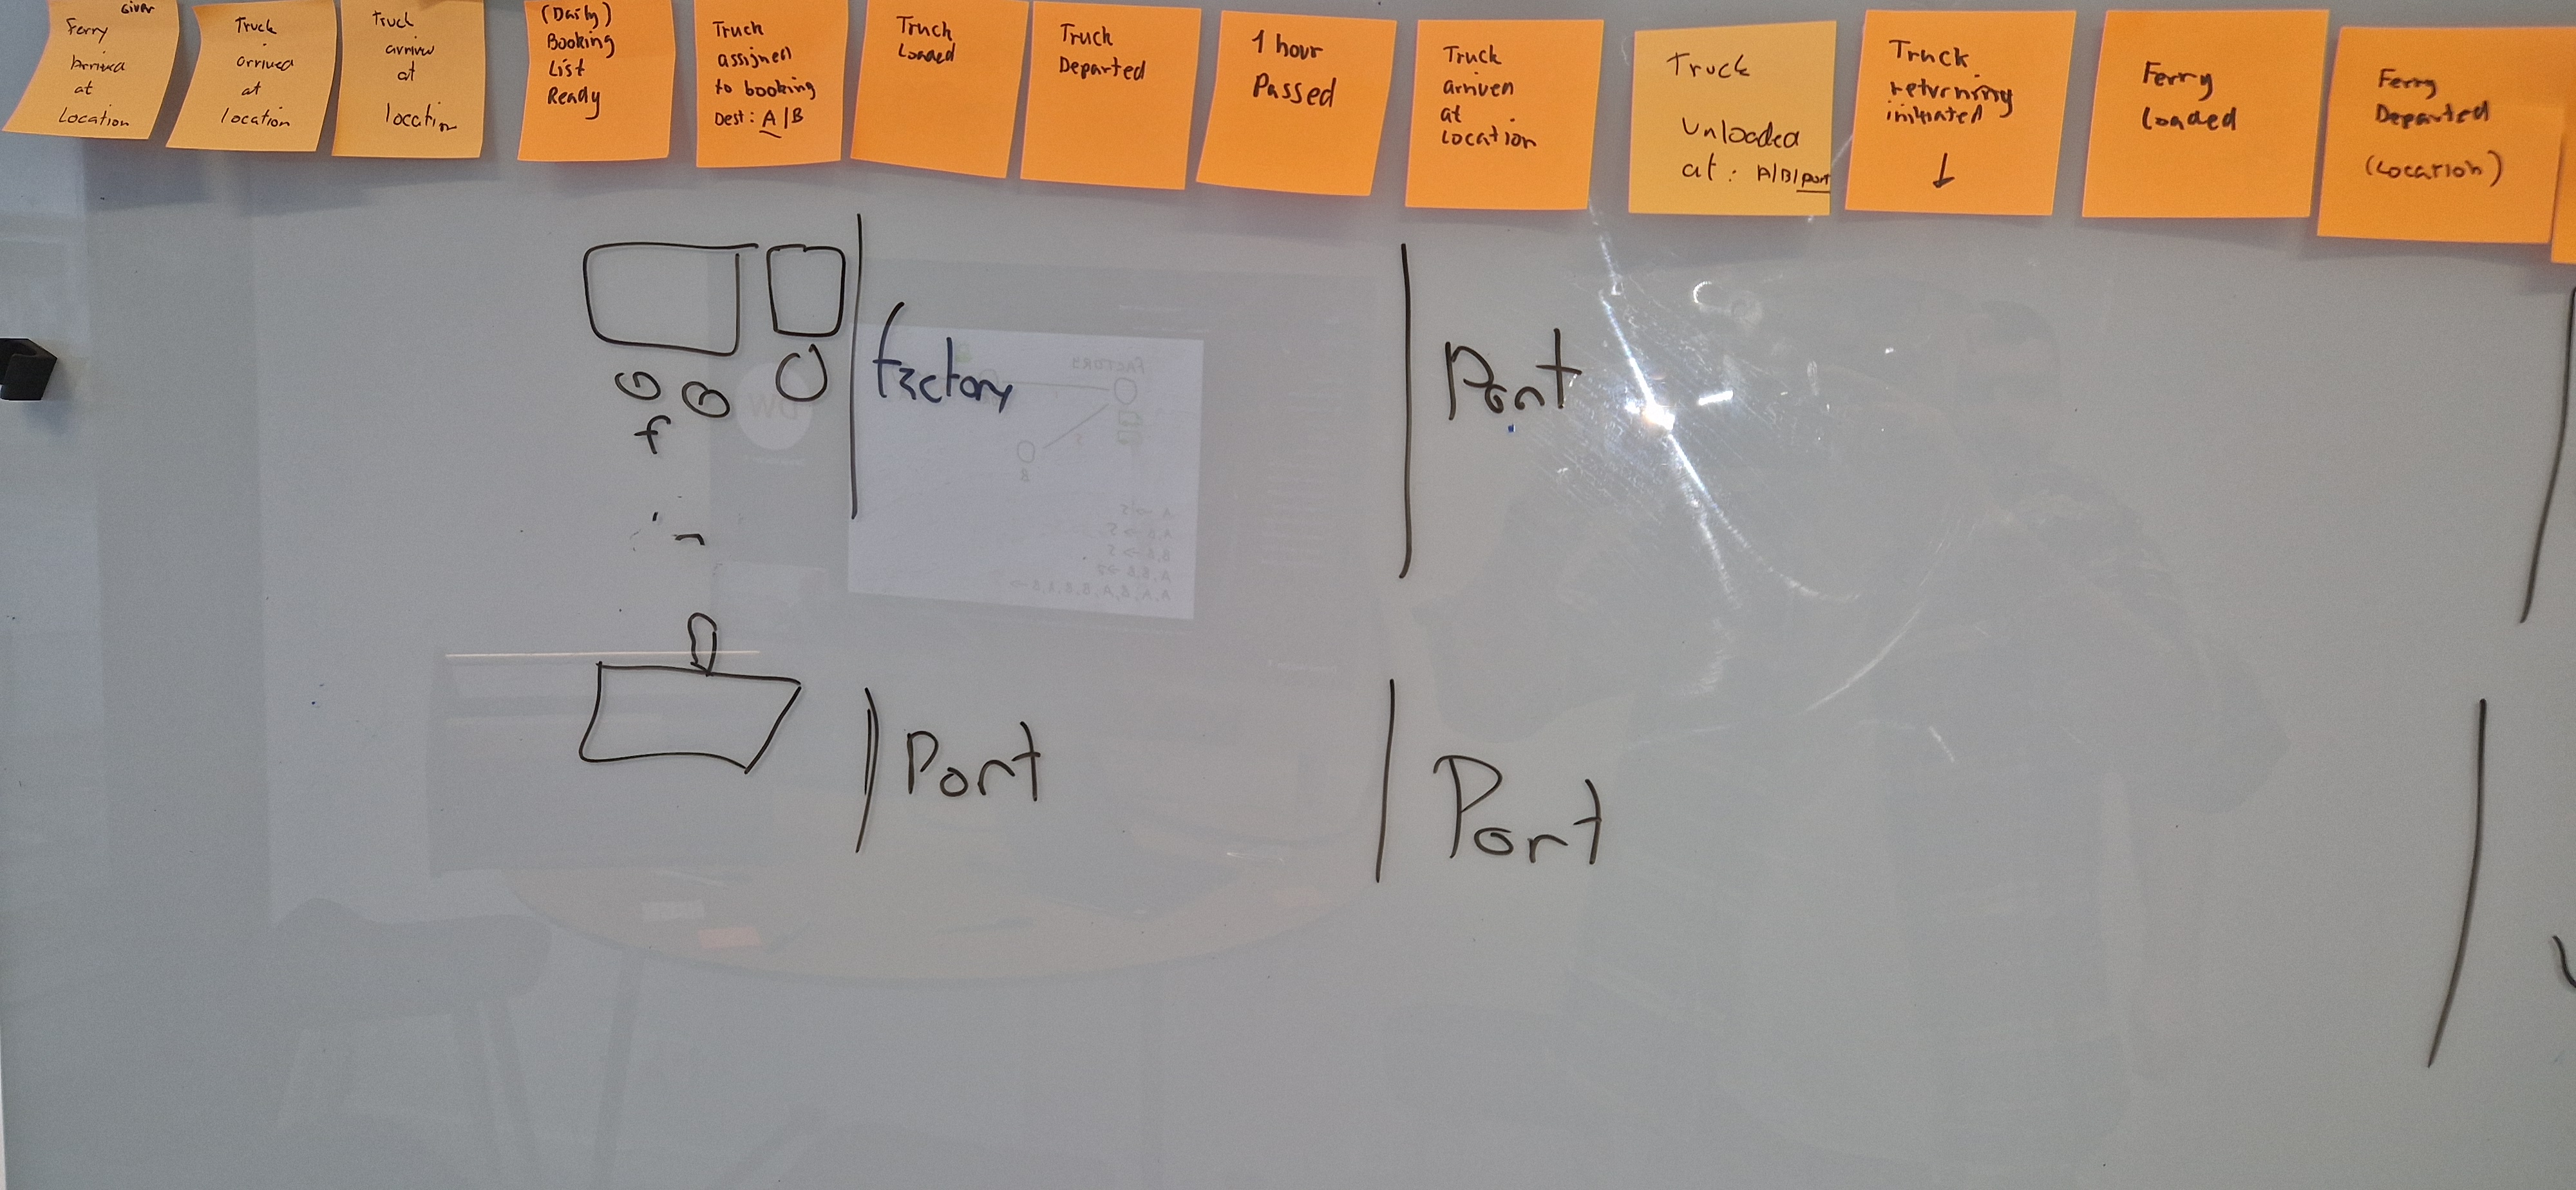 Given
Ferry
Arrived
at
Location
Truck
arrived
at
location
Truck
arrived
at
location
(Daily)
Booking
List
Ready
Truck
assigned
to booking
Dest: A|B
Truck
Loaded
Truck
Departed
1 hour
Passed
Truck
arriven
at
Location
Truck
Unloaded
at: A|B|port
Truck
returning
initiated
↓
Ferry
Loaded
Ferry
Departed
(Location)
factory
Port
f
Port
Port
FACTORY
B
A → 5
A,B → 5
B,B → 5
A,B,B → 7?
A,A,B,A,B,B,B,A,B →